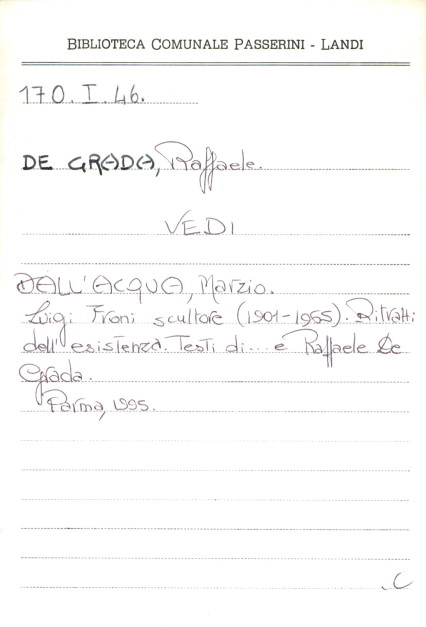 BIBLIOTECA COMUNALE PASSERINI - LANDI
170.I.46.
DE GRADA, Raffaele.
VEDI
DALL'ACQUA, Marzio.
Luigi Froni scultore (1901-1965). Ritratti
dell'esistenza. Testi di... e Raffaele De
Grada.
Parma, 1995.
C